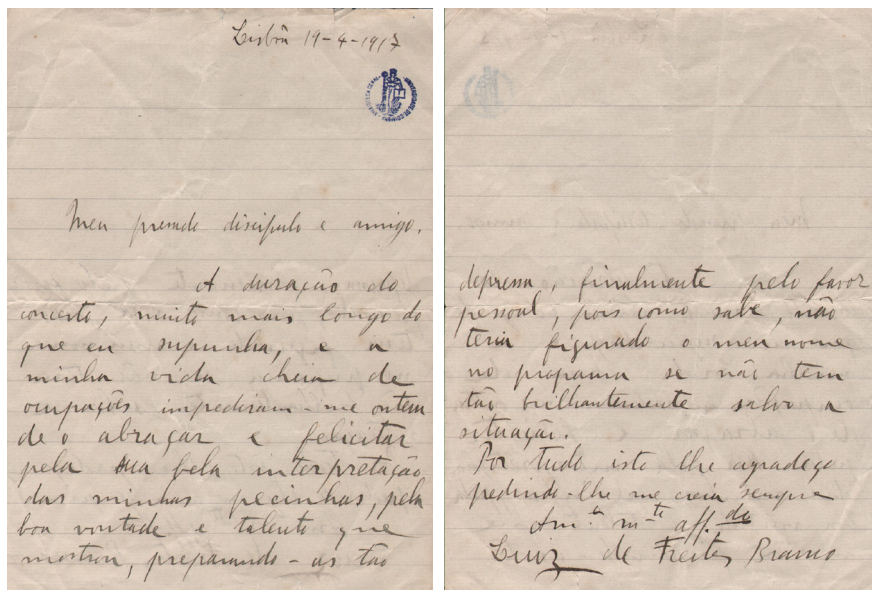 Lisbôa 19-4-1917
Meu prezado discipulo e amigo.
A duração do
concerto, muito mais longo do
que eu supunha, e a
minha vida cheia de
ocupações impediram-me ontem
de o abraçar e felicitar
pela sua bela interpretação
das minhas pecinhas, pela
boa vontade e talento que
mostrou, preparando-as tão
depressa, finalmente pelo favor
pessoal, pois como sabe, não
teria figurado o meu nome
no programa se não tem
tão brilhantemente salvo a
situação.
Por tudo isto lhe agradeço
pedindo-lhe me creia sempre
Am.º m.to aff.do
Luiz de Freitas Branco